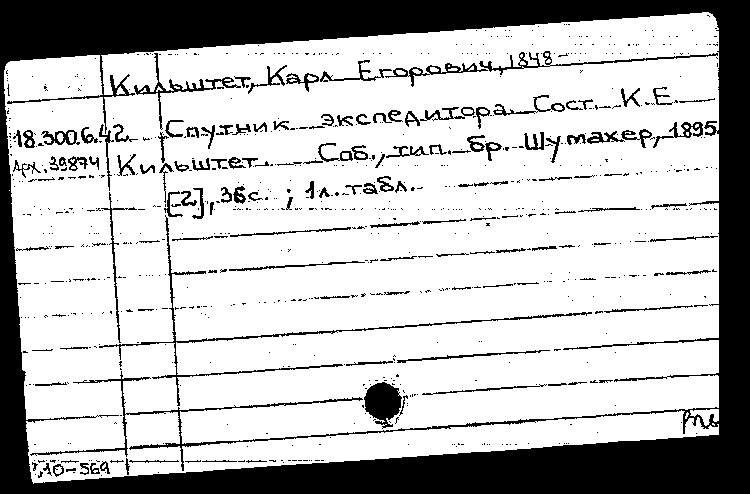 Кильштет, Карл Егорович, 1848-
18.300.6.42. Спутник экспедитора. Сост. К.Е.
Арх. 39874 Кильштет. Спб., тип. бр. Шумахер, 1895.
[2], 36с. ; 1л. табл.
10-569